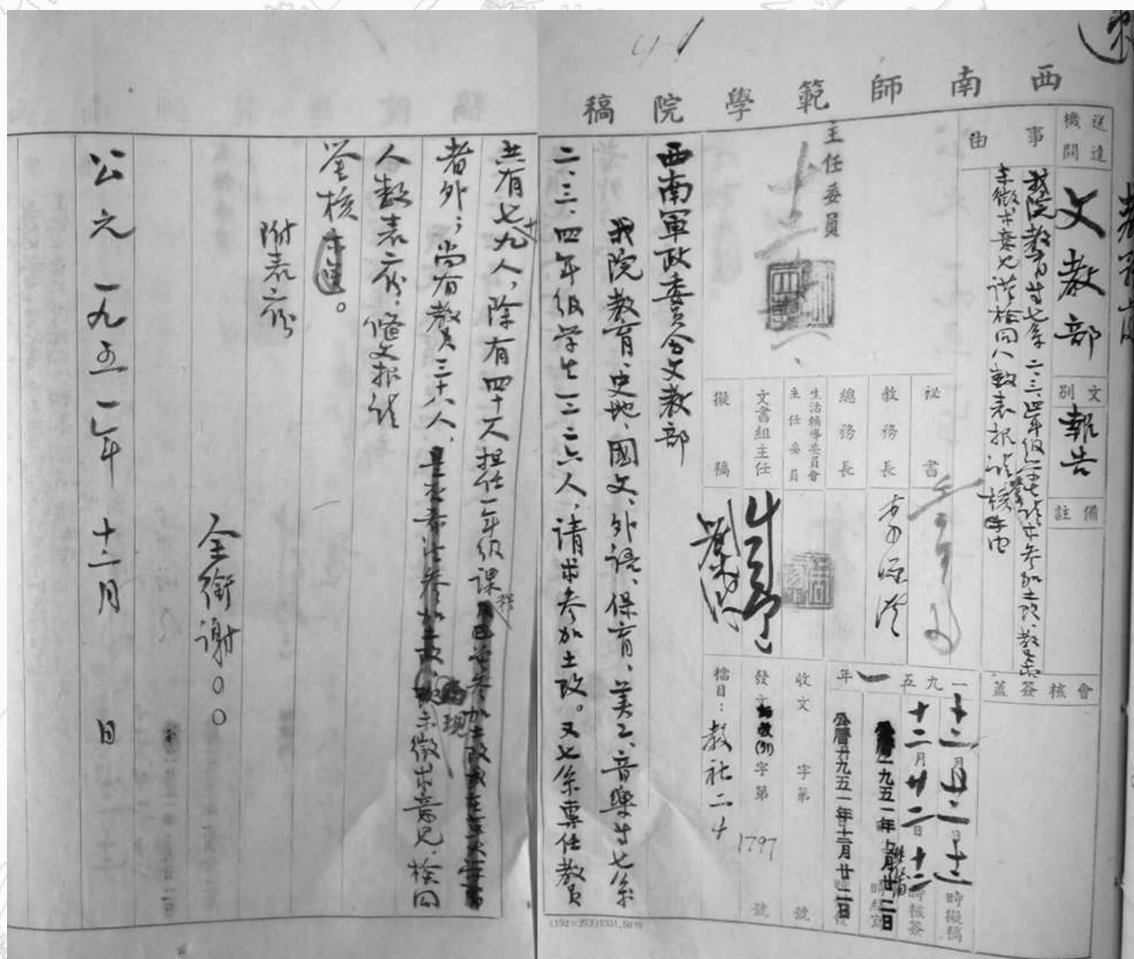 西南師範學院稿
送達機關
文教部
文別
報告
備註
事由
我院教育等七系二.三.四年级学生請求参加土改教員
未徵求意見謹檢同人數表报請核示由
會核簽蓋
主任委員
祕書
教務長
總務長
生活輔導委員會主任委員
文書組主任
擬稿
一九五一年
十二月廿二日十二時擬稿
十二月廿二日十二時核簽
公曆一九五一年十二月廿二日
公曆一九五一年十二月廿二日
收文 字第 號
發文 師教(51)字第 1797 號
檔目：教社二
西南軍政委員会文教部
我院教育、史地、國文、外语、保育、美工、音樂等七系
二.三.四年级学生一二六人，请求参加土改。又七系專任教員
共有七十九人，除有四十一人担任一年级課程
者外；尚有教員三十八人，現未徵求意見，檢同
人數表二份，備文报請
鉴核。
附表二份
全銜謝〇〇
公元一九五一年十二月 日